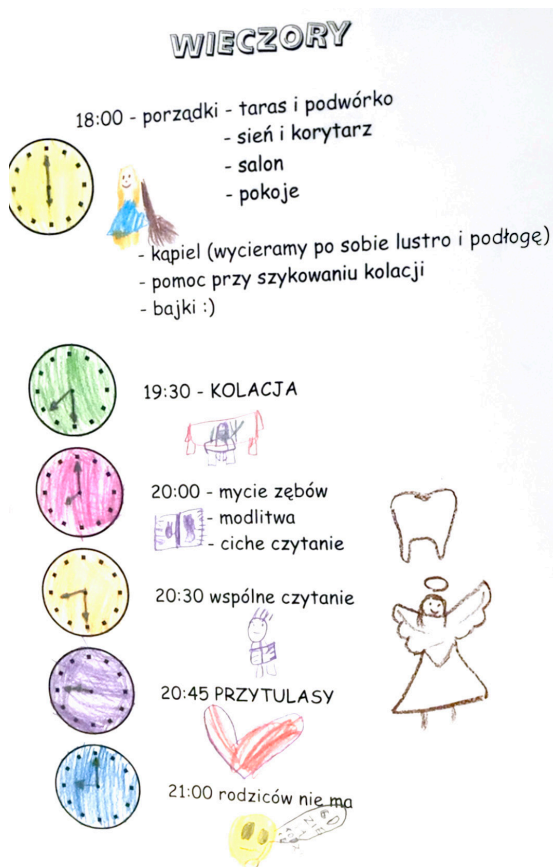 WIECZORY
18:00 - porządki - taras i podwórko
- sień i korytarz
- salon
- pokoje
- kąpiel (wycieramy po sobie lustro i podłogę)
- pomoc przy szykowaniu kolacji
- bajki :)
19:30 - KOLACJA
20:00 - mycie zębów
- modlitwa
- ciche czytanie
20:30 wspólne czytanie
20:45 PRZYTULASY
21:00 rodziców nie ma